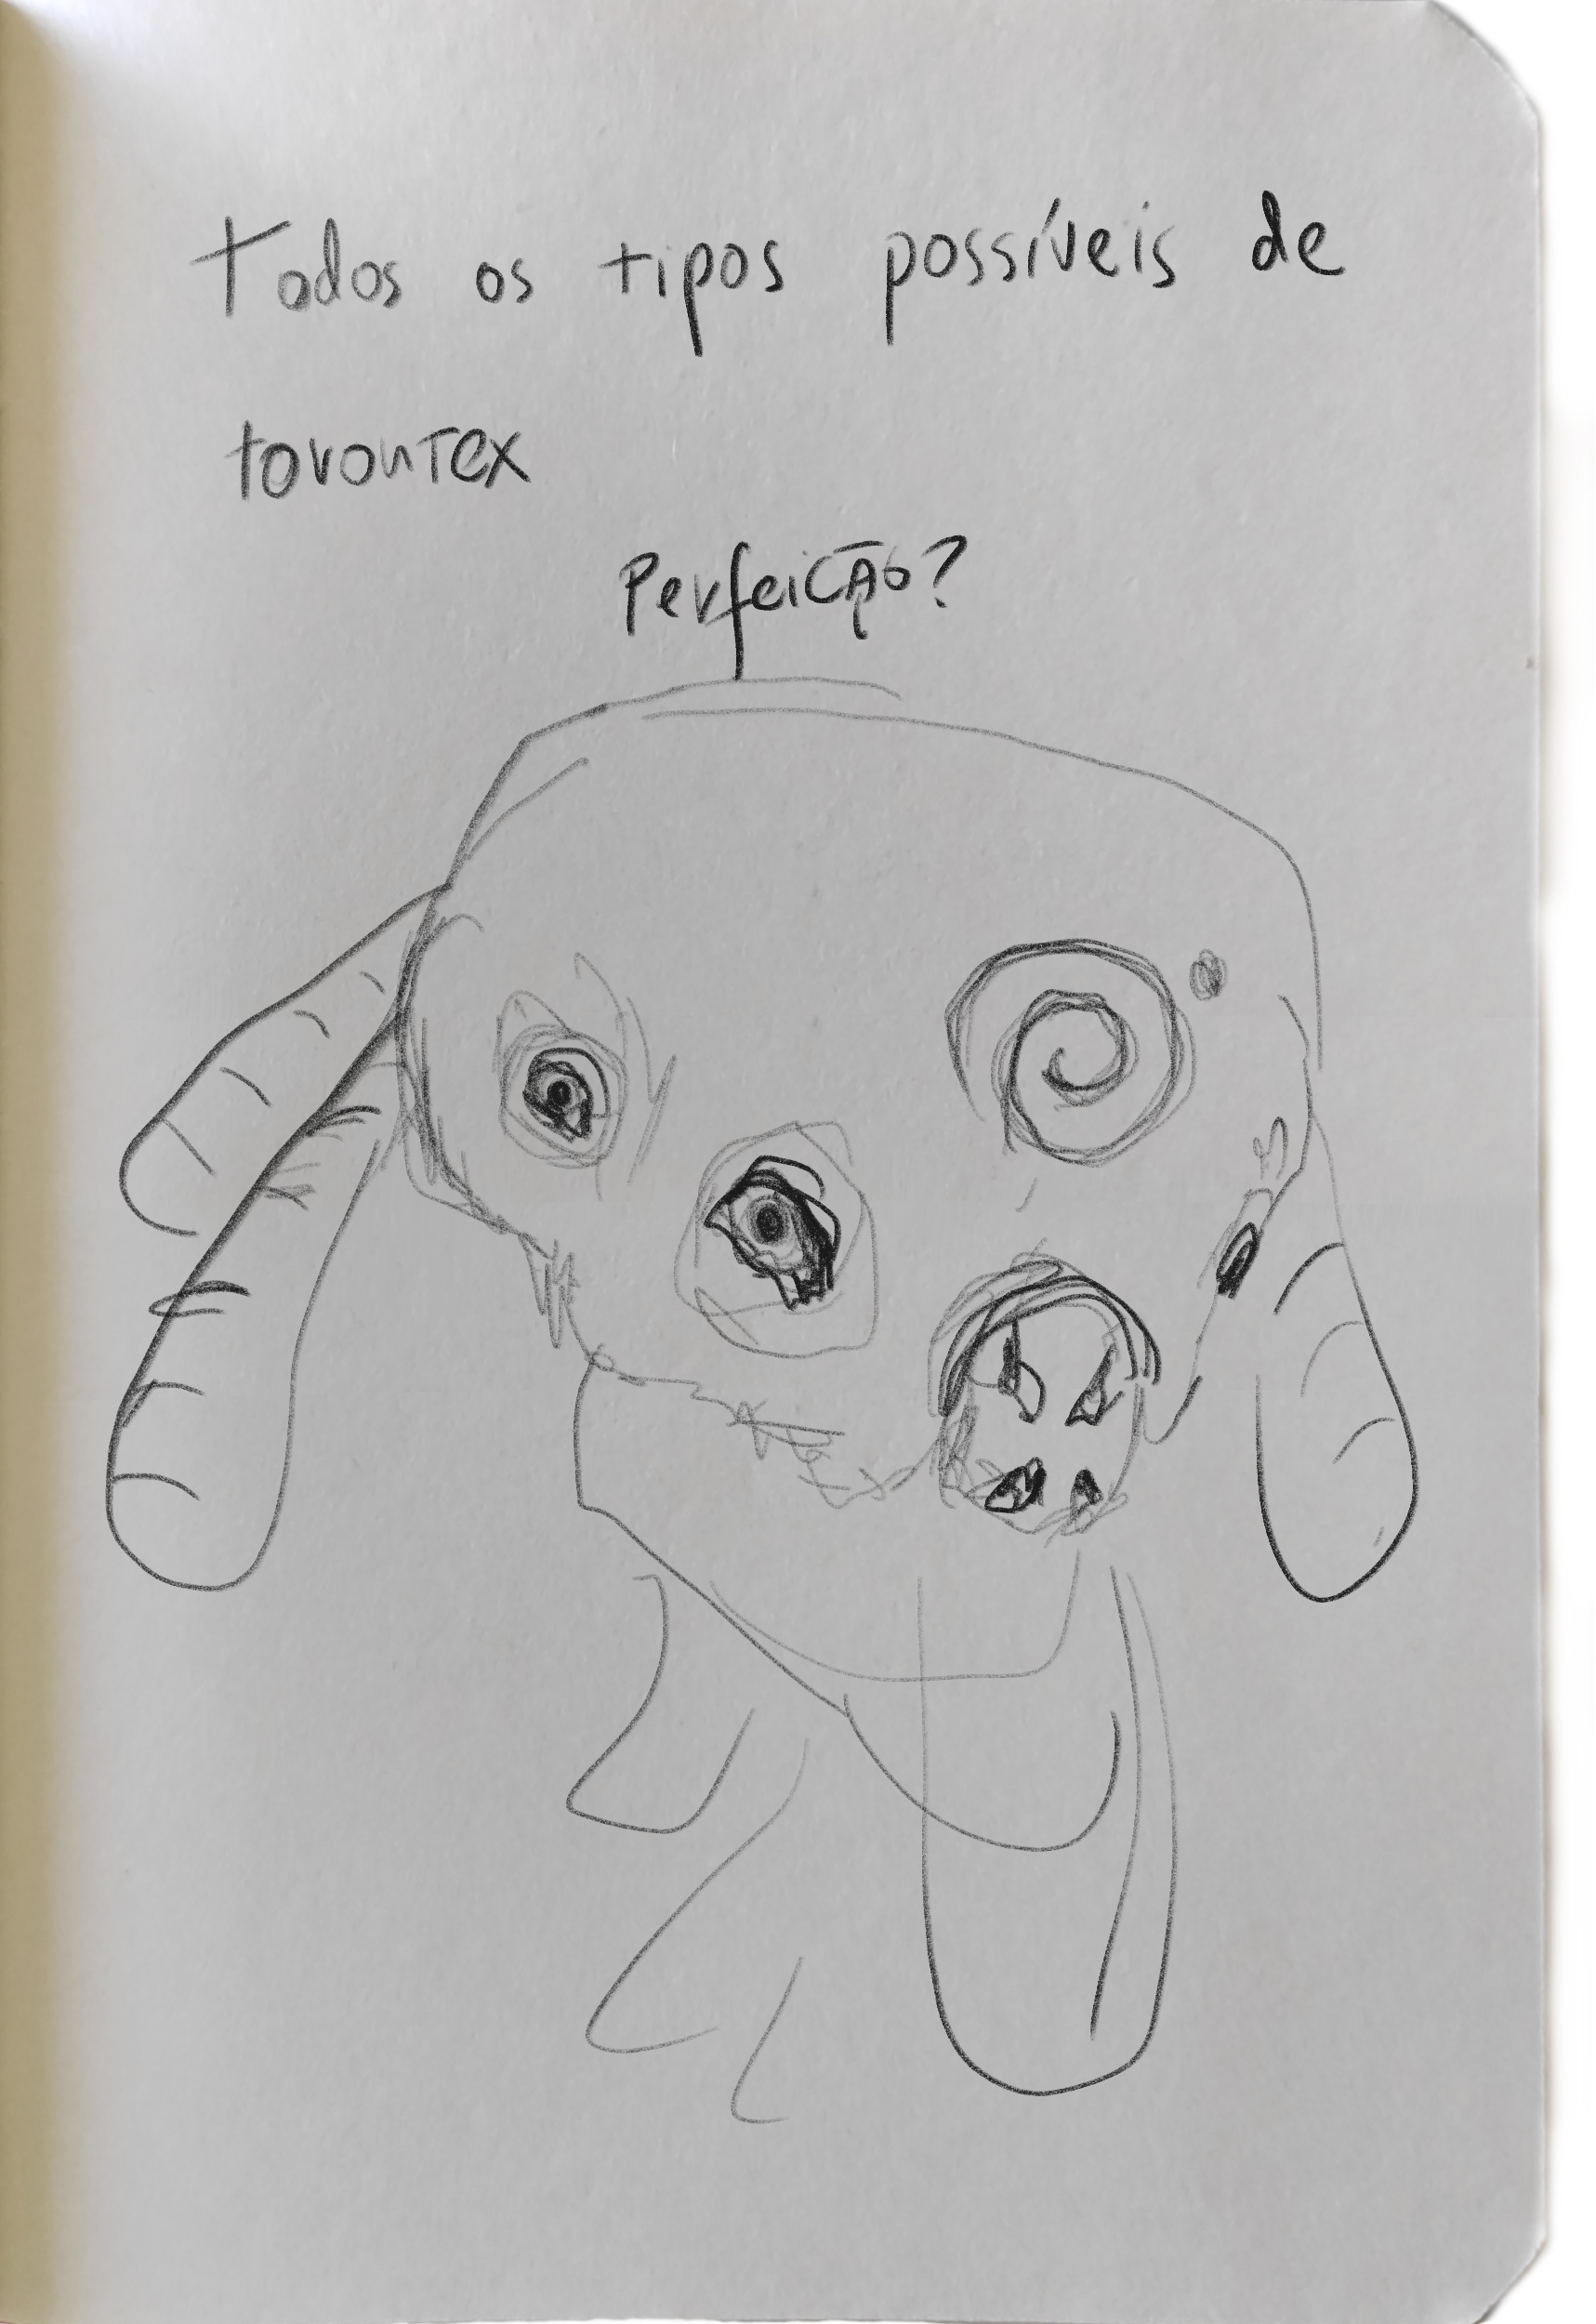 Todos os tipos possíveis de
torontex
Perfeição?